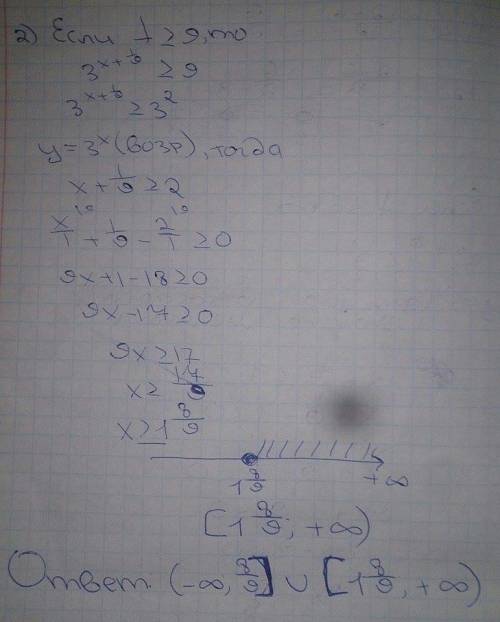 2) Если t ≥ 9, то
3^{x+1/9} ≥ 9
3^{x+1/9} ≥ 3^2
y = 3^x (возр), тогда
x + 1/9 ≥ 2
x/1 + 1/9 - 2/1 ≥ 0
9x + 1 - 18 ≥ 0
9x - 17 ≥ 0
9x ≥ 17
x ≥ 17/9
x ≥ 1 8/9
1 8/9 +∞
[1 8/9; +∞)
Ответ. (-∞, 8/9] ∪ [1 8/9, +∞)